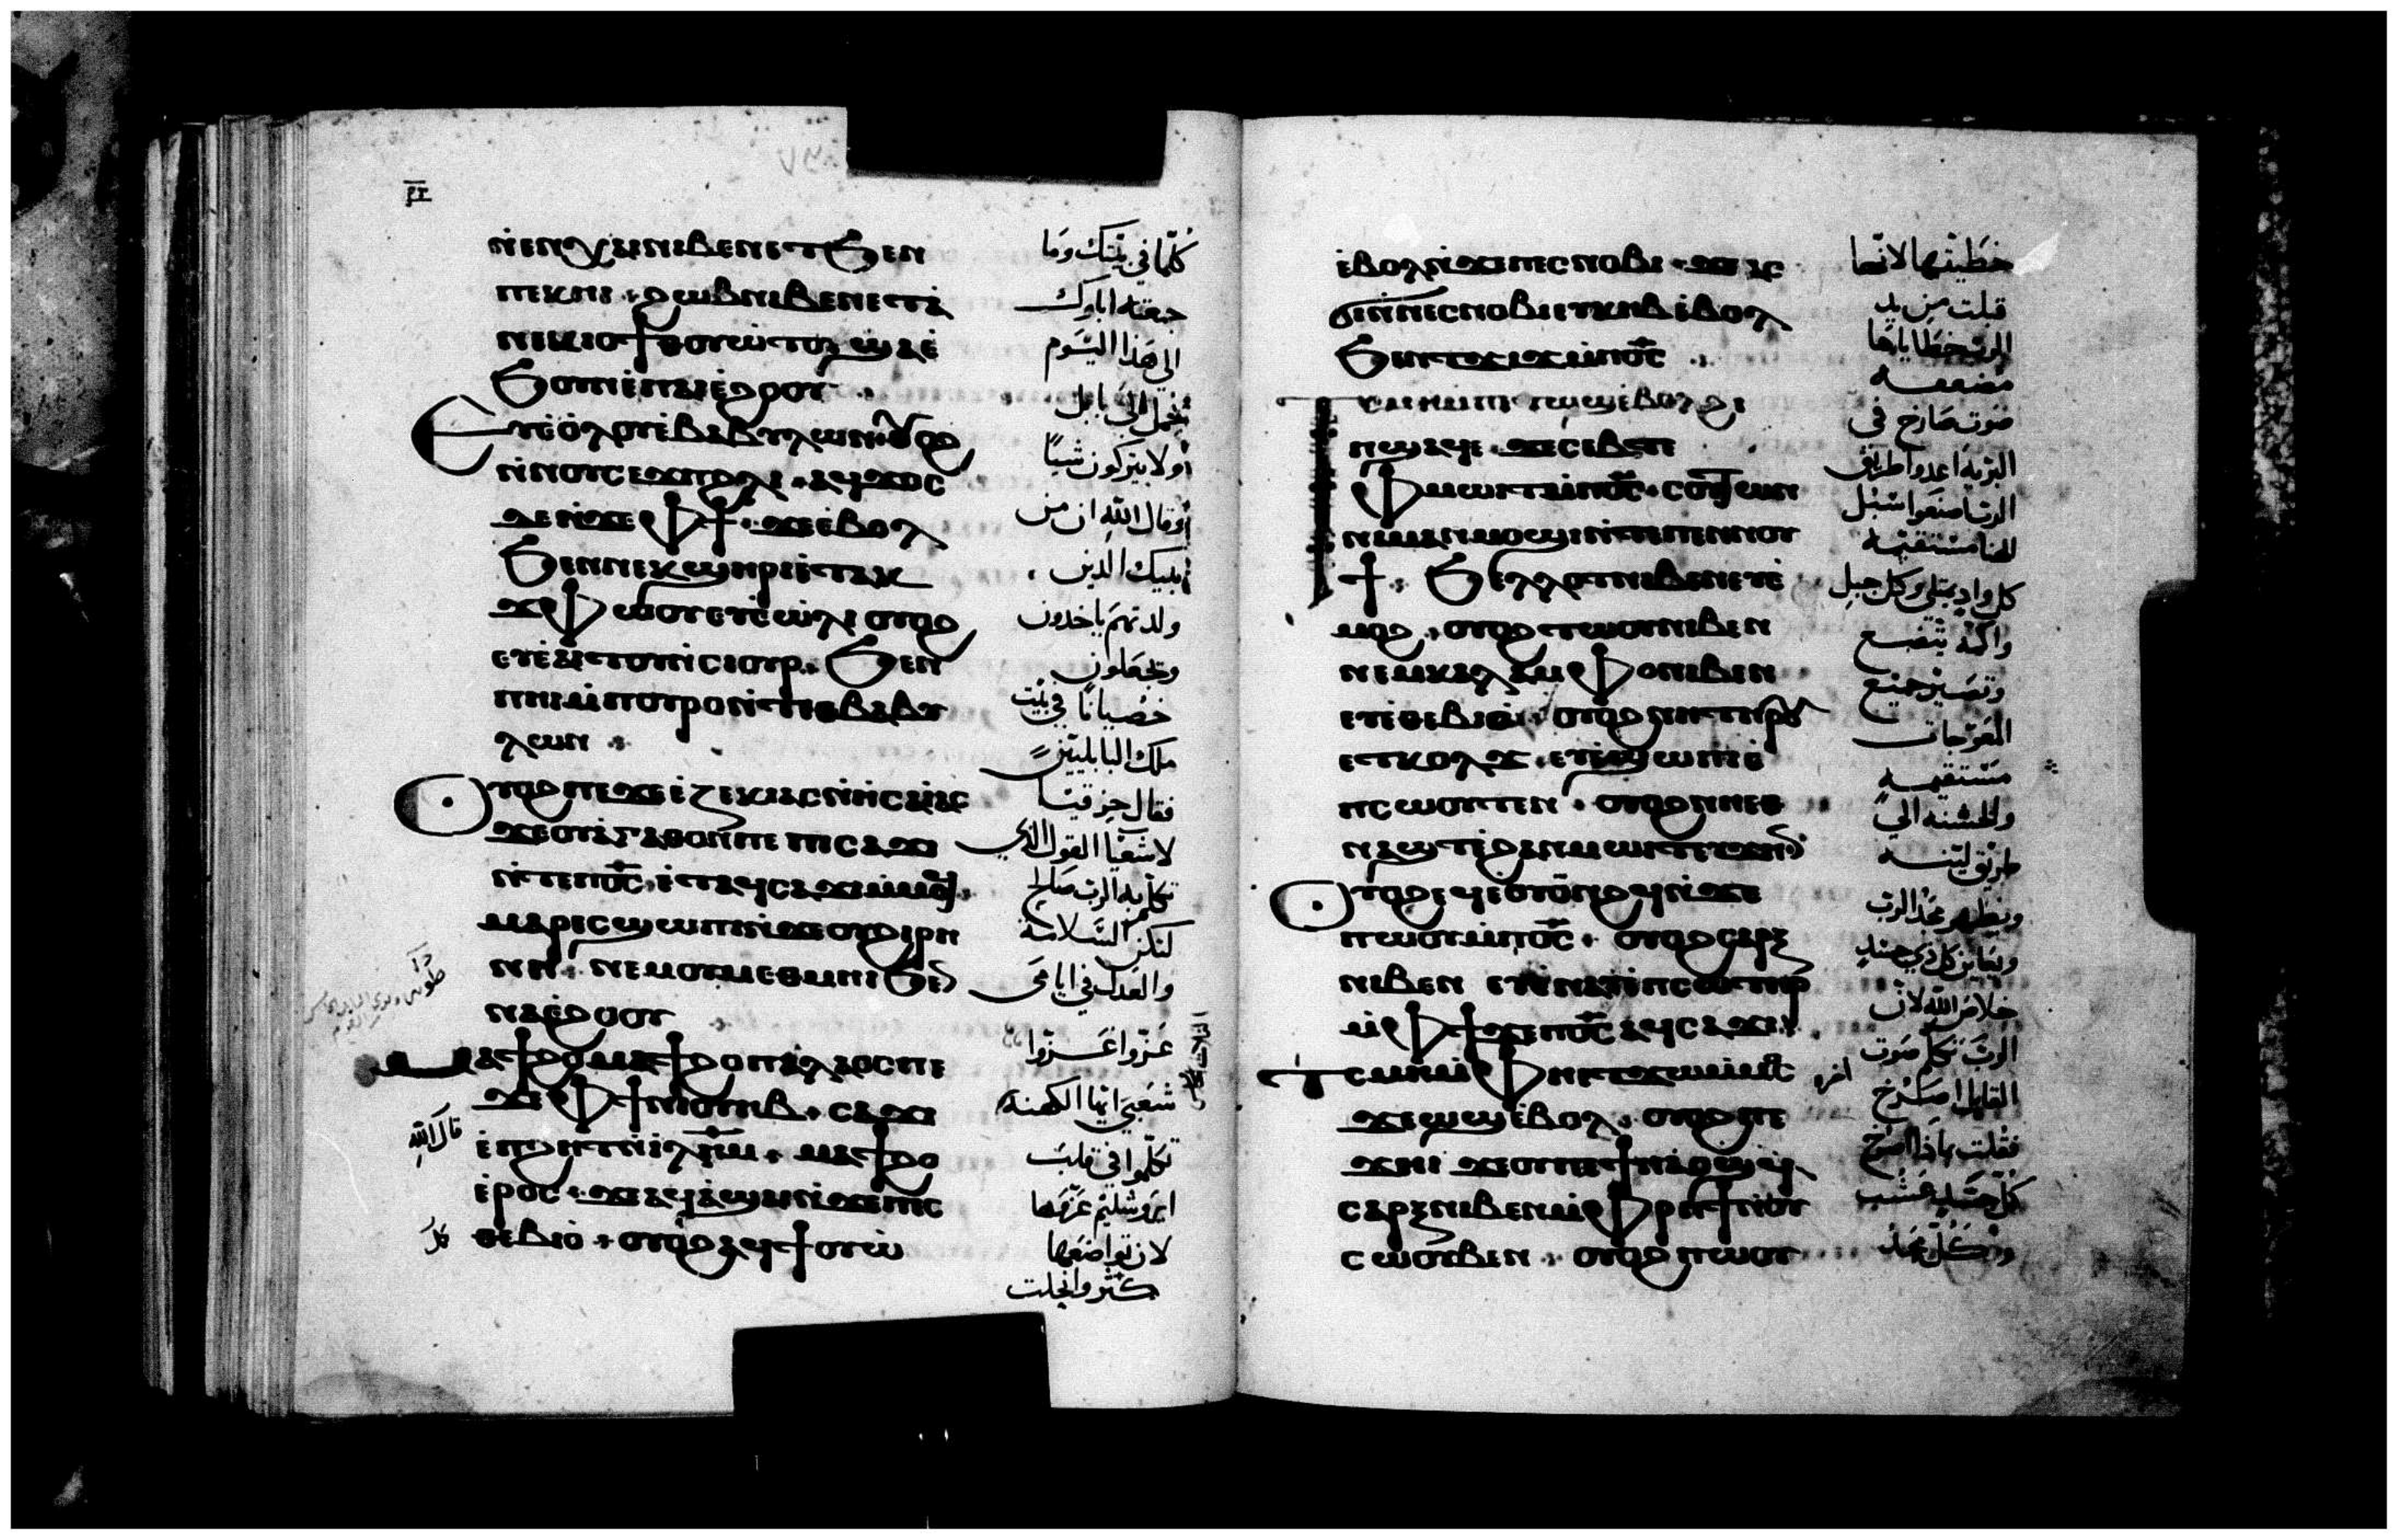 ⲛ̀ⲉⲛⲭⲁⲓ ⲛⲓⲃⲉⲛ ⲉⲧϧⲉⲛ
ⲡⲉⲕⲏⲓ ⲛⲉⲙ ϩⲱⲃ ⲛⲓⲃⲉⲛ ⲉⲧⲁ̀
ⲛⲉⲕⲓⲟϯ ⲑⲟⲩⲱⲧⲟⲩ ϣⲁⲉ̀
ϧⲟⲩⲛ ⲉ̀ⲡⲁⲓⲉ̀ϩⲟⲟⲩ
ⲉⲩⲉ̀ⲟⲗⲟⲩ ⲉ̀ⲃⲁⲃⲩⲗⲱⲛ ⲟⲩⲟϩ
ⲛ̀ⲛⲟⲩⲥⲉϫⲡ ϩⲗⲓ ⲁϥϫⲟⲥ
ⲇⲉ ⲛ̀ϫⲉ ⲫϯ ϫⲉ ⲉ̀ⲃⲟⲗ
ϧⲉⲛ ⲛⲉⲕϣⲏⲣⲓ ⲉ̀ⲧⲁⲕ
ϫⲫⲱⲟⲩ ⲉⲩⲉ̀ⲱ̀ⲗⲓ ⲟⲩⲟϩ
ⲉⲩⲉ̀ⲁⲓⲧⲟⲩ ⲛ̀ⲥⲓⲟⲩⲣ ϧⲉⲛ
ⲡⲏⲓ ⲙ̀ⲡⲟⲩⲣⲟ ⲛ̀ⲧⲉ ⲑⲃⲁⲃⲩ
ⲗⲱⲛ
ⲟⲩⲟϩ ⲡⲉϫⲉ ⲉⲍⲉⲕⲓⲁⲥ ⲛ̀ⲏⲥⲁⲏⲁⲥ
ϫⲉ ⲟⲩⲁ̀ⲅⲁⲑⲟⲛ ⲡⲉ ⲡⲓⲥⲁϫⲓ
ⲛ̀ⲧⲉ ⲡⲟ̅ⲥ̅ ⲉ̀ⲧⲁϥⲥⲁϫⲓ ⲙ̀ⲙⲟϥ
ⲙⲁⲣⲉⲥϣⲱⲡⲓ ⲛ̀ϫⲉ ⲟⲩϩⲓⲣⲏ
ⲛⲏ ⲛⲉⲙ ⲟⲩⲙⲉⲑⲙⲏⲓ ϧⲉⲛ
ⲛⲁⲉ̀ϩⲟⲟⲩ
ⲙⲁϯϩⲟ ⲙⲁϯϩⲟ ⲡⲁⲗⲁⲟⲥ ⲡⲉ
ϫⲉ ⲫϯ ⲛⲓⲟⲩⲏⲃ ⲥⲁϫⲓ
ⲉ̀ⲡϩⲏⲧ ⲛ̀ⲓⲗ̅ⲏ̅ⲙ̅ ⲙⲁϯϩⲟ
ⲉ̀ⲣⲟⲥ ϫⲉ ⲁϥⲁ̀ϣⲁⲓ ⲛ̀ϫⲉ ⲡⲉⲥ
ⲑⲉⲃⲓⲟ̀ ⲟⲩⲟϩ ⲁϥϯⲟⲩⲱ̀
كلما في بيتك وما
جمعته اباوك
الى هذا اليوم
يحمل الى بابل
ولا يتركون شيئا
وقال الله ان من
بنيك الذين
ولدتهم ياخذون
ويجعلون
خصيانا في بيت
ملك البابليين
فقال حزقيا
لاشعيا القول الذي
تكلم به الرب صالح
لتكن السلامة
والعدل في ايامي
عزوا عزوا
شعبي ايها الكهنة
تكلموا في قلب
ايروشليم عزوها
لان تواضعها
كثر وانحلت
قال الله
ⲉ̀ⲃⲟⲗ ⲛ̀ϫⲉ ⲡⲉⲥⲛⲟⲃⲓ ϫⲉ ⲁⲥ
ϭⲓ ⲛ̀ⲛⲉⲥⲛⲟⲃⲓ ⲉⲩⲕⲏⲃ ⲉ̀ⲃⲟⲗ
ϧⲉⲛ ⲧϫⲓϫ ⲙ̀ⲡⲟ̅ⲥ̅
ⲧⲥⲙⲏ ⲙ̀ⲡⲉⲧⲱϣ ⲉ̀ⲃⲟⲗ ϩⲓ
ⲡϣⲁϥⲉ ϫⲉ ⲥⲉⲃⲧⲉ
ⲫⲙⲱⲓⲧ ⲙ̀ⲡⲟ̅ⲥ̅ ⲥⲟⲩⲧⲱⲛ
ⲛⲓⲙⲁⲙ̀ⲙⲟϣⲓ ⲛ̀ⲧⲉ ⲡⲉⲛⲛⲟⲩ
ϯ ϧⲉⲗⲗⲟⲧ ⲛⲓⲃⲉⲛ ⲉⲩⲉ̀
ⲙⲟϩ ⲟⲩⲟϩ ⲧⲱⲟⲩ ⲛⲓⲃⲉⲛ
ⲛⲉⲙ ⲕⲁⲗⲁⲙⲫⲟ ⲛⲓⲃⲉⲛ
ⲉⲩⲉ̀ⲑⲉⲃⲓⲟ̀ ⲟⲩⲟϩ ⲛⲏ ⲧⲏⲣⲟⲩ
ⲉⲧⲕⲟⲗϫ ⲉⲩⲉ̀ϣⲱⲡⲓ ⲉ̀
ⲡⲥⲱⲟⲩⲧⲉⲛ ⲟⲩⲟϩ ⲛⲏⲉⲑ
ⲛⲁϣⲧ ⲉ̀ϩⲁⲛⲙⲱⲓⲧ ⲉⲩϫⲏⲛ
ⲟⲩⲟϩ ⲉϥⲉ̀ⲟⲩⲟⲛϩϥ ⲛ̀ϫⲉ
ⲡⲱⲟⲩ ⲙ̀ⲡⲟ̅ⲥ̅ ⲟⲩⲟϩ ⲥⲁⲣⲝ
ⲛⲓⲃⲉⲛ ⲉⲩⲉ̀ⲛⲁⲩ ⲉ̀ⲡⲥⲱⲧⲏⲣ
ⲙ̀ⲫϯ ϫⲉ ⲡⲟ̅ⲥ̅ ⲁϥⲥⲁϫⲓ
ⲧⲥⲙⲏ ⲙ̀ⲫⲏⲉⲧϫⲱ ⲙ̀ⲙⲟⲥ
ϫⲉ ⲱϣ ⲉ̀ⲃⲟⲗ ⲟⲩⲟϩ ⲡⲉ
ϫⲏⲓ ϫⲉ ⲟⲩ ⲡⲉϯⲛⲁⲱϣ
ⲥⲁⲣⲝ ⲛⲓⲃⲉⲛ ⲙ̀ⲫⲣⲏϯ ⲛ̀ⲟⲩ
ⲥⲱⲟⲩⲃⲉⲛ ⲟⲩⲟϩ ⲡⲱⲟⲩ
خطيتها لانها
قبلت من يد
الرب خطاياها
مضعفه
صوت صارخ في
البرية اعدوا طريق
الرب اصنعوا سبل
الهنا مستقيمه
كل واد يمتلي وكل جبل
واكمه يتضع
وتصير جميع
المعوجات
مستقيمه
والخشنه الى
طريق لينه
ويظهر مجد الرب
ويعاين كل ذي جسد
خلاص الله لان
الرب تكلم صوت
القايل اصرخ
فقلت بماذا اصرخ
كل جسد عشب
وكل مجد